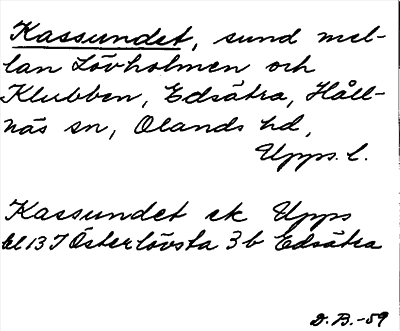 Kassundet, sund mel-
lan Lövholmen och
Klubben, Edsätra, Håll-
näs sn, Olands hd,
Upps. l.
Kassundet ek Upps
bl 13 I Österlövsta 3b Edsätra
D. B. -59